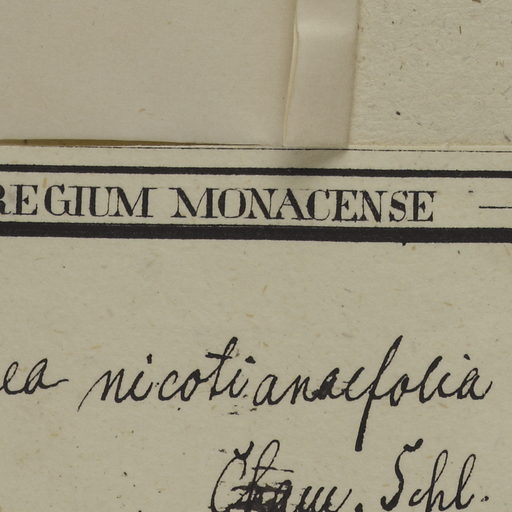 REGIUM MONACENSE
ea nicotianaefolia
Cham. Schl.